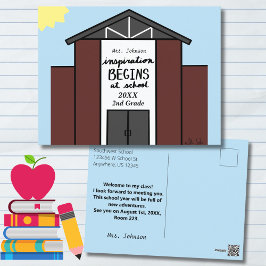 Mrs. Johnson
inspiration
BEGINS
at school
20XX
2nd Grade
Southwest School
123456 W School St
Anywhere, US 12345
Welcome to my class!
I look forward to meeting you.
This school year will be full of
new adventures.
See you on August 1st, 20XX.
Room 229.
Mrs. Johnson